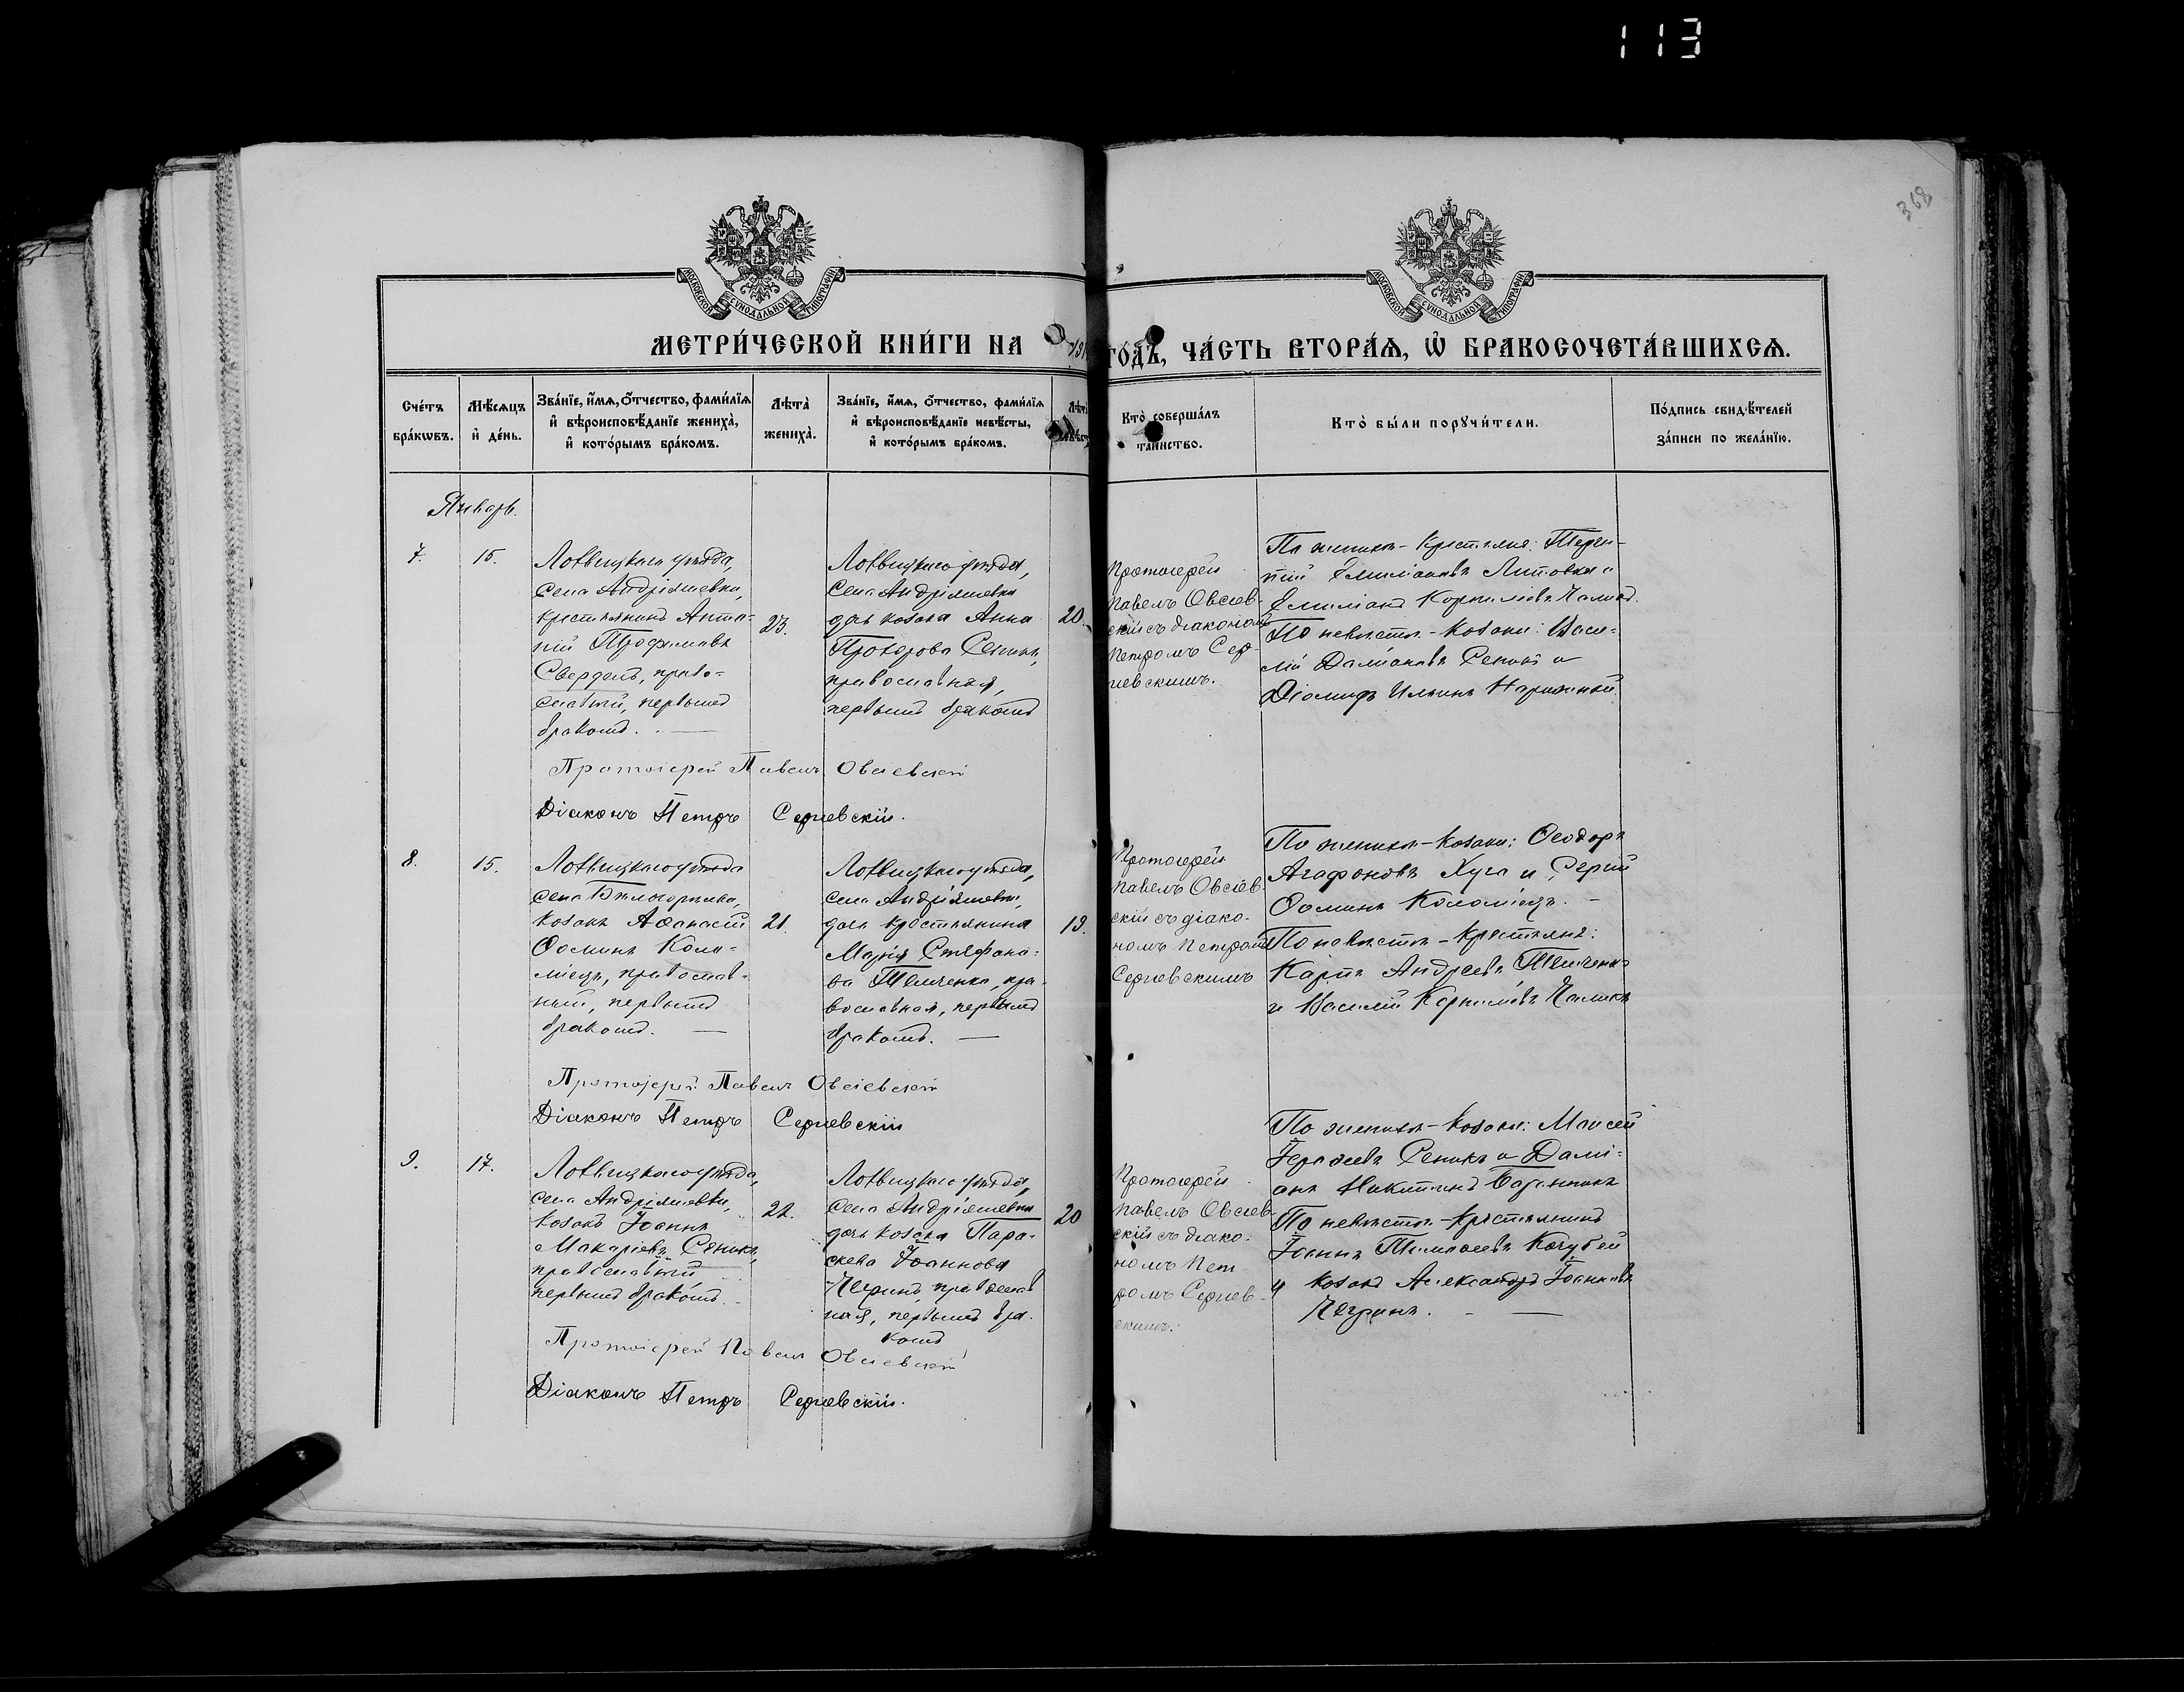 113
368
МОСКОВСКОЙ СУНОДАЛЬНОЙ ТИПОГРАФІИ
МОСКОВСКОЙ СУНОДАЛЬНОЙ ТИПОГРАФІИ
МЕТРИ́ЧЕСКОЙ КНИ́ГИ НА
ГОДЪ, ЧА́СТЬ ВТОРА́Я, Ѡ БРАКОСОЧЕТА́ВШИХСЯ.
Сче́тъ бра́кѡвъ.
Мѣ́сяцъ и де́нь.
Зва́нїе, и́мя, о́тчество, фами́лїя и вѣроисповѣ́данїе жениха̀, и кото́рымъ бра́комъ.
Лѣта̀ жениха̀.
Зва́нїе, и́мя, о́тчество, фами́лїя и вѣроисповѣ́данїе невѣ́сты, и кото́рымъ бра́комъ.
Кто̀ соверша́лъ таинство.
Кто̀ бы́ли порꙋчи́тели.
По́дпись свидѣ́телей за́писи по жела́нїю.
Январь.
7.
15.
Лохвицкаго уѣзда,
села Андріяшевки,
крестьянинъ Анто-
ній Трофимовъ
Свердель, право-
славный, первымъ
бракомъ.
23.
Лохвицкаго уѣзда,
села Андріяшевки
дочь козака Анна
Прохорова Сеникъ,
православная,
первымъ бракомъ
20.
Протоіерей
Павелъ Овсіев-
скій съ діакономъ
Петромъ Сер-
гіевскимъ.
По женихѣ - крестьяне: Терен-
тій Емиліановъ Литовка и
Емиліанъ Корниліевъ
По невѣстѣ - козаки: Васи-
лій Даміановъ Сеникъ и
Діомидъ Ильинъ Нарижный
Протоіерей Павелъ Овсіевскій
Діаконъ Петръ Сергіевскій.
8.
15.
Лохвицкаго уѣзда
села Бѣлогорилки,
козакъ Аѳанасій
Ѳоминъ Коло-
міецъ, православ-
ный, первымъ
бракомъ.
21.
Лохвицкаго уѣзда,
села Андріяшевки,
дочь крестьянина
Марія Стефано-
ва Темченко, пра-
вославная, первымъ
бракомъ.
19.
Протоіерей
Павелъ Овсіев-
скій съ діако-
номъ Петромъ
Сергіевскимъ
По женихѣ - козаки: Ѳеодоръ
Агафоновъ Хуга и Сергій
Ѳоминъ Коломіецъ.
По невѣстѣ - крестьяне:
Карпъ Андреевъ Темченко
и Василій Корниліевъ
Протоіерей Павелъ Овсіевскій
Діаконъ Петръ Сергіевскій
9.
17.
Лохвицкаго уѣзда,
села Андріяшевки,
козакъ Іоаннъ
Макаріевъ Сеникъ,
православный,
первымъ бракомъ.
22.
Лохвицкаго уѣзда,
села Андріяшевки
дочь козака Пара-
скева Іоаннова
православ
ная, первымъ бра-
комъ
20
Протоіерей
Павелъ Овсіев-
скій съ діако-
номъ Пет-
ромъ Сергіев-
скимъ.
По женихѣ - козаки: Моисей
Сеникъ и Дамі-
анъ Никитинъ
По невѣстѣ - крестьянинъ
Іоаннъ Тимоѳеевъ Кочубей
и козакъ Александръ Іоанновъ
Протоіерей Павелъ Овсіевскій
Діаконъ Петръ Сергіевскій.